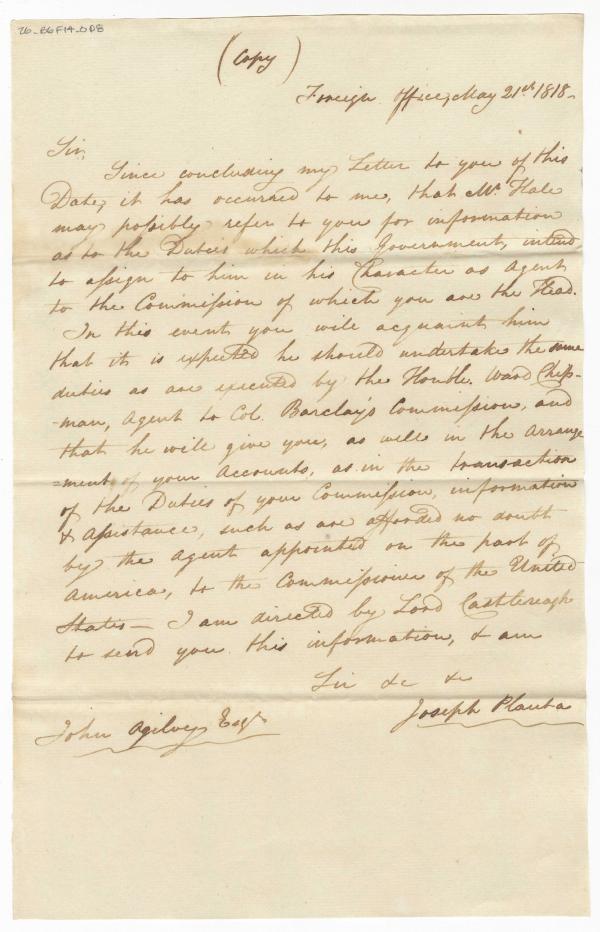 26_B6F14_008
(Copy)
Foreign Office, May 21st 1818-
Sir,
Since concluding my Letter to you of this
Date, it has occurred to me, that Mr. Hale
may possibly refer to you for information
as to the Duties which this Government, intend,
to assign to him in his Character as Agent
to the Commission of which you are the Head.
In this event you will acquaint him
that it is expected he should undertake the same
duties as are executed by the Honble. Ward Chip-
-man, Agent to Col. Barclay's Commission, and
that he will give you, as well in the Arrange
-ment of your Accounts, as in the transaction
of the Duties of your Commission, information
& Assistance, such as are afforded no doubt
by the Agent appointed on the part of
America, to the Commissioner of the United
States— I am directed by Lord Castlereagh
to send you this information, & am
Sir &c &c
Joseph Planta
John Ogilvy Esqr